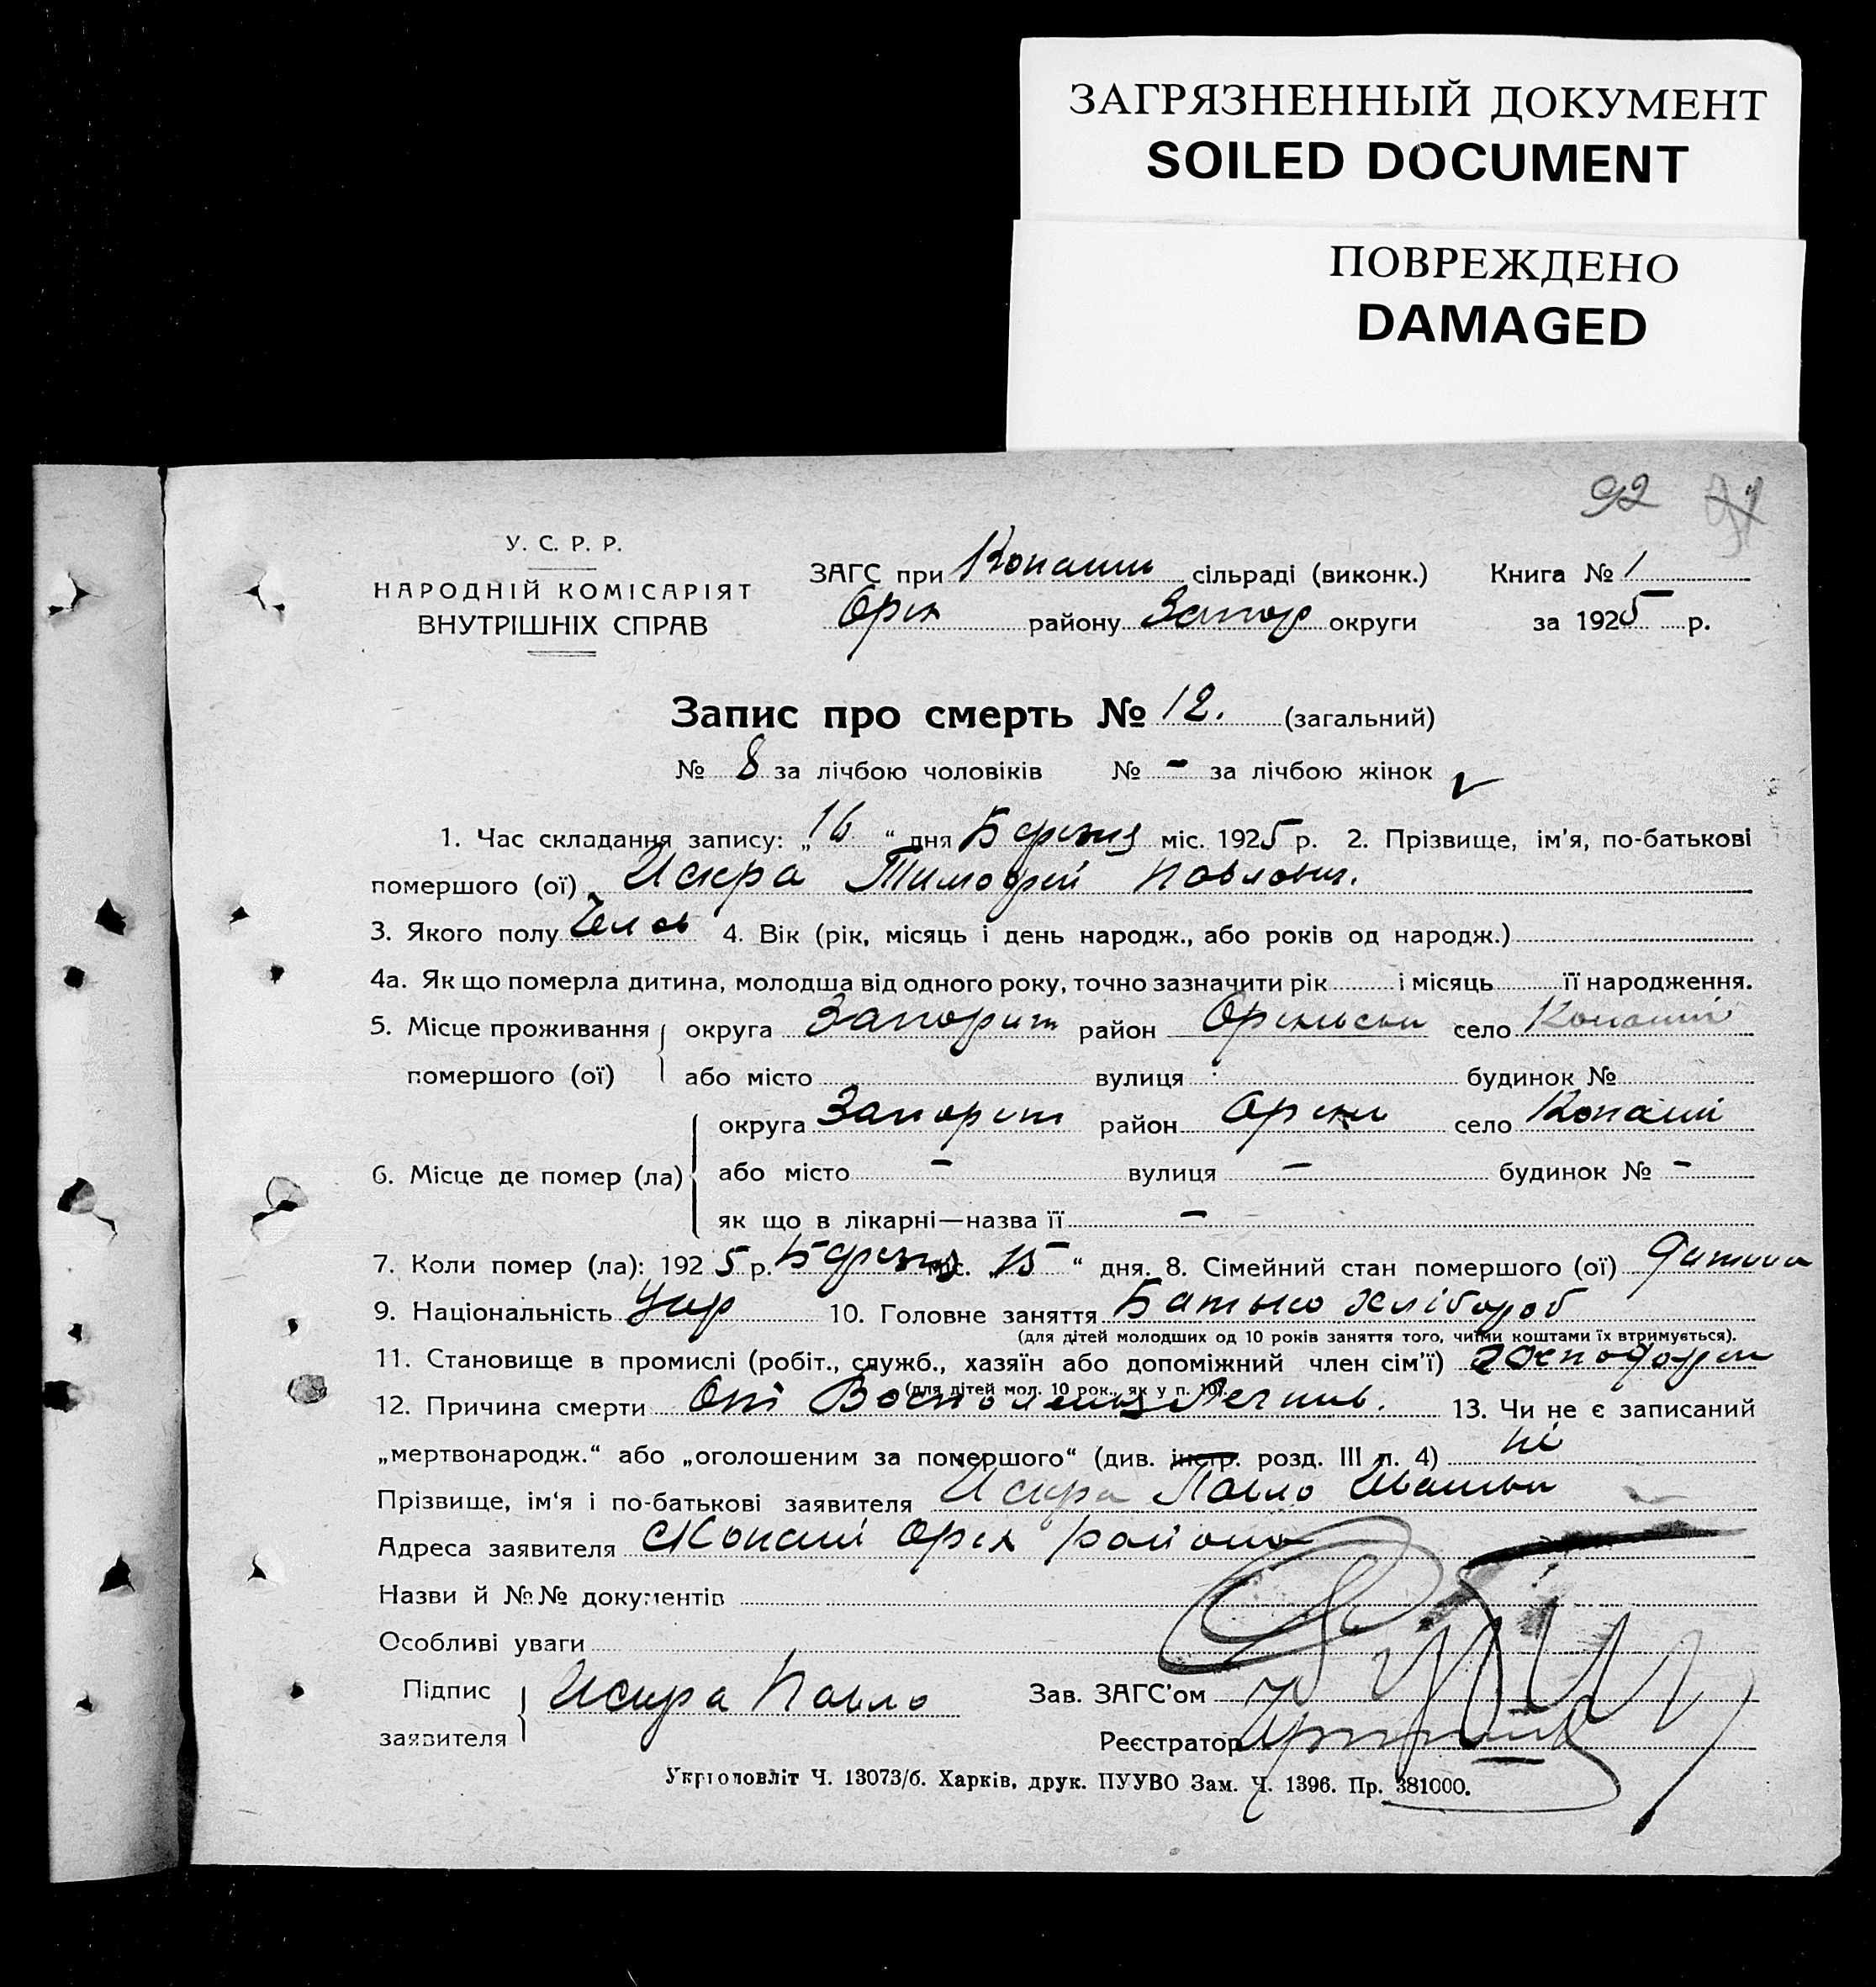 ЗАГРЯЗНЕННЫЙ ДОКУМЕНТ
SOILED DOCUMENT
ПОВРЕЖДЕНО
DAMAGED
92
У. С. Р. Р.
НАРОДНІЙ КОМІСАРІЯТ
ВНУТРІШНІХ СПРАВ
ЗАГС при Копанш сільраді (виконк.) Книга № 1
Оріх району Запор округи за 1925 р.
Запис про смерть № 12. (загальний)
№ 8 за лічбою чоловіків № - за лічбою жінок
1. Час складання запису: „16 “ дня Березня міс. 1925 р. 2. Прізвище, ім'я, по-батькові
помершого (ої) Искра Тимофей Павлович.
3. Якого полу Челов 4. Вік (рік, місяць і день народж., або років од народж.)
4а. Як що померла дитина, молодша від одного року, точно зазначити рік і місяць її народження.
5. Місце проживання округа Запориж район село Копані
помершого (ої) або місто вулиця будинок №
округа район село Копані
6. Місце де помер (ла) або місто - вулиця - будинок № -
як що в лікарні—назва її -
7. Коли помер (ла): 1925 р. Березня міс. „15 “ дня. 8. Сімейний стан помершого (ої) дитина
9. Національність Укр 10. Головне заняття Батько хлібороб
(для дітей молодших од 10 років заняття того, чиїми коштами їх втримується).
11. Становище в промислі (робіт., служб., хазяїн або допоміжний член сім'ї)
(для дітей мол. 10 рок., як у п. 10).
12. Причина смерти От Воспаления 13. Чи не є записаний
„мертвонародж.“ або „оголошеним за помершого“ (див. інстр. розд. III п. 4) ні
Прізвище, ім'я і по-батькові заявителя Искра Павло
Адреса заявителя с Копані Оріх району
Назви й №№ документів
Особливі уваги
Підпис
заявителя Искра Павло
Зав. ЗАГС'ом
Реєстратор
Укрголовліт Ч. 13073/б. Харків, друк. ПУУВО Зам. Ч. 1396. Пр. 381000.